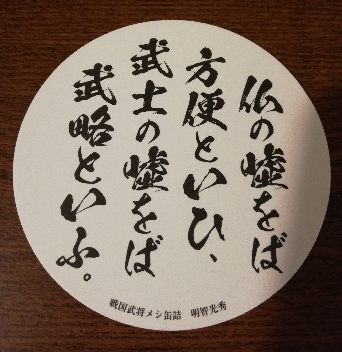 仏の嘘をば
方便といひ、
武士の嘘をば
武略といふ。
戦国武将メシ缶詰 明智光秀